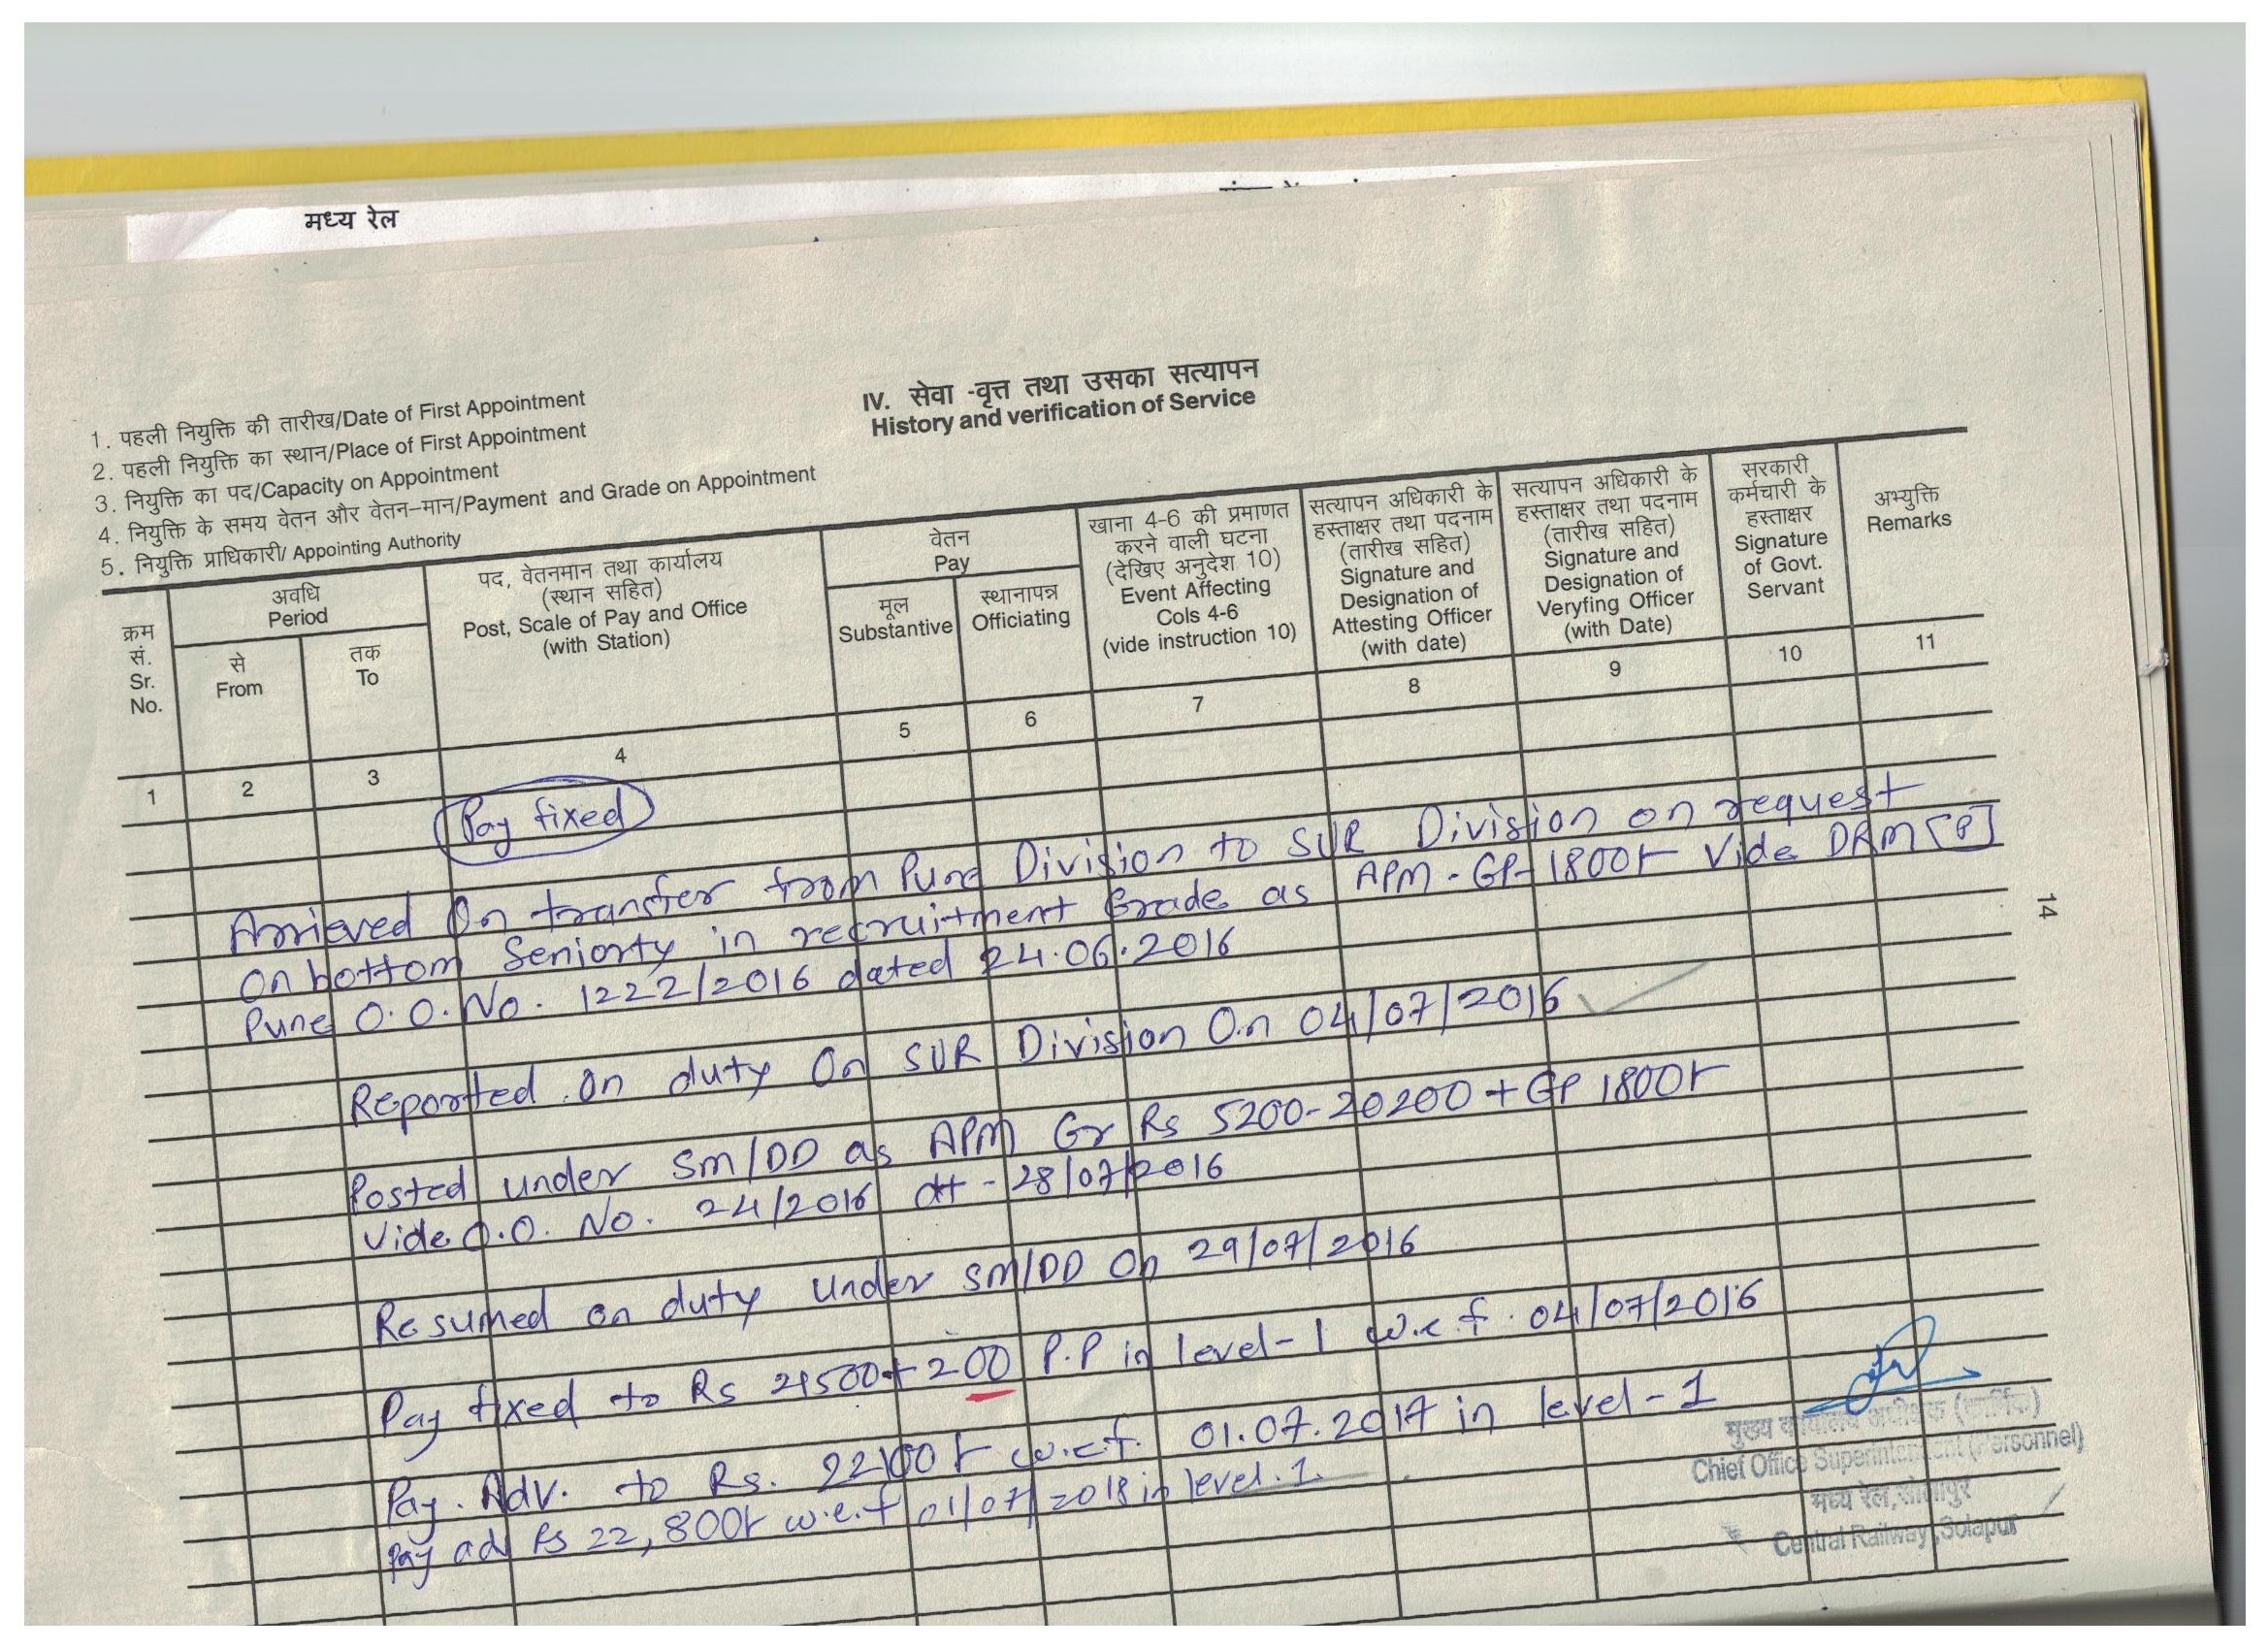 मध्य रेल
IV. सेवा -वृत्त तथा उसका सत्यापन
History and verification of Service
1. पहली नियुक्ति की तारीख/Date of First Appointment
2. पहली नियुक्ति का स्थान/Place of First Appointment
3. नियुक्ति का पद/Capacity on Appointment
4. नियुक्ति के समय वेतन और वेतन-मान/Payment and Grade on Appointment
5. नियुक्ति प्राधिकारी/ Appointing Authority
क्रम
सं.
Sr.
No.
अवधि
Period
से
From
तक
To
पद, वेतनमान तथा कार्यालय
(स्थान सहित)
Post, Scale of Pay and Office
(with Station)
वेतन
Pay
मूल
Substantive
स्थानापन्न
Officiating
खाना 4-6 की प्रमाणत
करने वाली घटना
(देखिए अनुदेश 10)
Event Affecting
Cols 4-6
(vide instruction 10)
सत्यापन अधिकारी के
हस्ताक्षर तथा पदनाम
(तारीख सहित)
Signature and
Designation of
Attesting Officer
(with date)
सत्यापन अधिकारी के
हस्ताक्षर तथा पदनाम
(तारीख सहित)
Signature and
Designation of
Veryfing Officer
(with Date)
सरकारी
कर्मचारी के
हस्ताक्षर
Signature
of Govt.
Servant
अभ्युक्ति
Remarks
1 2 3 4 5 6 7 8 9 10 11
Pay fixed
Arrieved On transfer from Pune Division to SUR Division on request
on bottom Seniorty in recruitment Grade as APM - GP- 1800/- Vide DRM [P]
Pune O.O. No. 1222/2016 dated 24.06.2016
Reported on duty On SUR Division On 04/07/2016
Posted under SM/DD as APM Gr Rs 5200-20200 + GP 1800/-
Vide O.O. No. 24/2016 dt - 28/07/2016
Resumed on duty under SM/DD On 29/07/2016
Pay fixed to Rs 21500+200 P.P in level-1 w.e.f. 04/07/2016
Pay. Adv. to Rs. 22100/- w.e.f. 01.07.2017 in level-1
Pay adv Rs 22,800/- w.e.f 01/07/2018 in level.1.
मुख्य कार्यालय अधीक्षक (कार्मिक)
Chief Office Superintendent (Personnel)
मध्य रेल, सोलापुर
Central Railway, Solapur
14